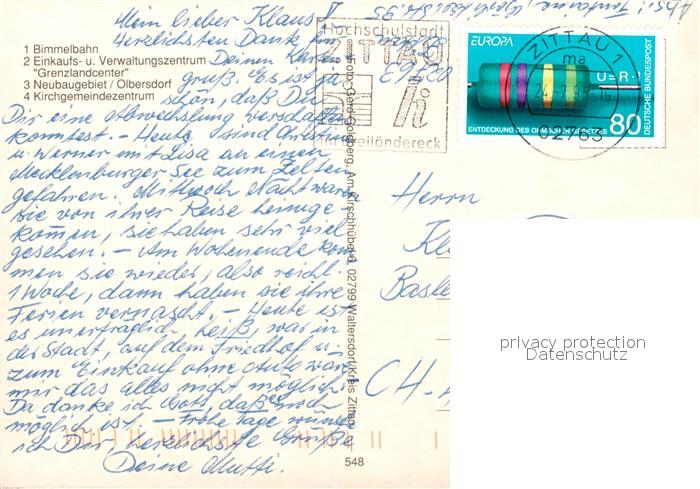 Mein lieber Klaus!
Herzlichsten Dank für
Deinen Karten
gruß. Es ist ja
schön, daß Du
Dir eine Abwechslung verschaffen
konntest. – Heute sind Christian
u. Werner mit Lisa an einen
Mecklenburger See zum Zelten
gefahren. Mittwoch Nacht waren
sie von ihrer Reise heimge
kommen, sie haben sehr viel
gesehen. – Am Wochenende kom
men sie wieder, also reichl.
1 Woche, dann haben sie ihre
Ferien vernascht. – Heute ist
es unerträglich heiß, war in
der Stadt, auf dem Friedhof u.
zum Einkauf ohne Auto wäre
mir das alles nicht möglich.
Da danke ich Gott, daß es noch
möglich ist. – Frohe Tage wünscht
ich Dir, herzlichste Grüße
Deine Mutti.
1 Bimmelbahn
2 Einkaufs- u. Verwaltungszentrum
"Grenzlandcenter"
3 Neubaugebiet / Olbersdorf
4 Kirchgemeindezentrum
Foto: Gerd Goldberg, Am Kirschhübel, 02799 Waltersdorf/Kreis Zittau
548
Hochschulstadt
ZITTAU
im Dreiländereck
EUROPA
ZITTAU 1
ma
24.-7.95-16
02763
U=R·I
ENTDECKUNG DES OHMSCHEN GESETZES
80
DEUTSCHE BUNDESPOST
Herrn
Kl
Basle
CH-
privacy protection
Datenschutz